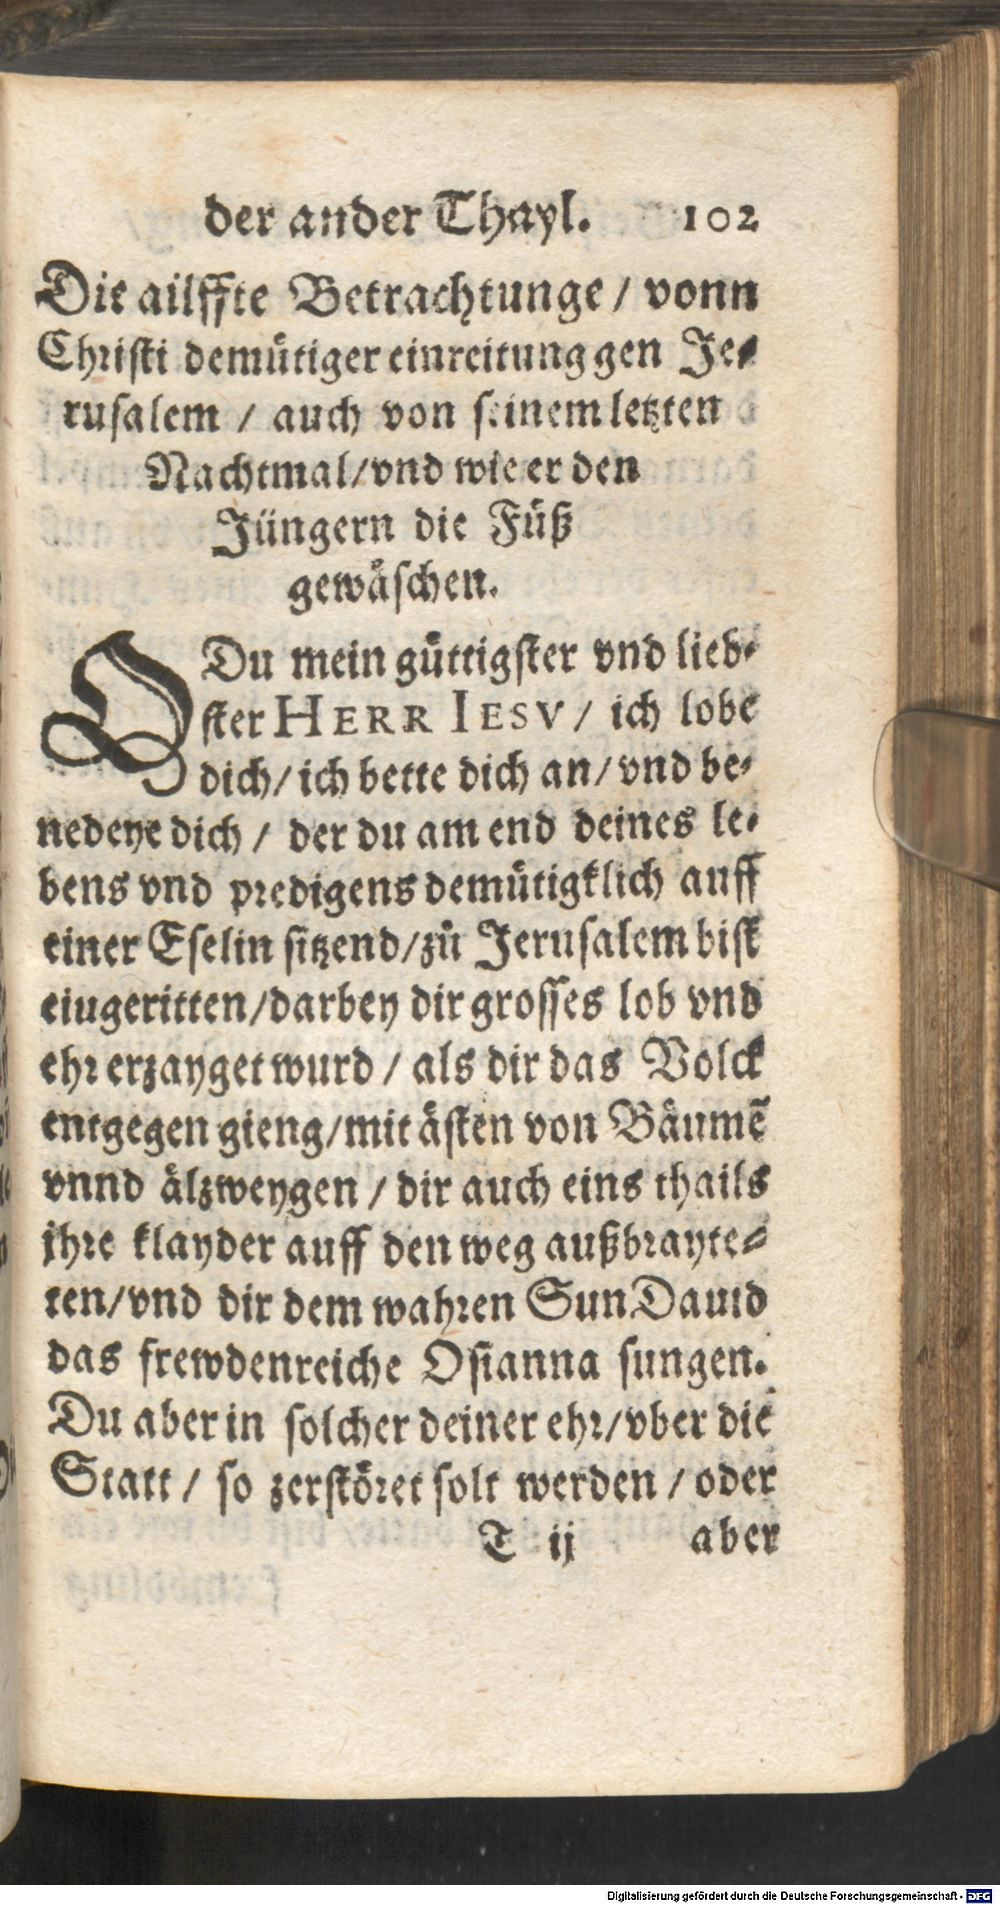 der ander Thayl. 102
Die ailffte Betrachtunge / vonn
Christi demütiger einreitung gen Je⸗
rusalem / auch von seinem letzten
Nachtmal/vnd wie er den
Jüngern die Füß
gewäschen.
O Du mein güttigster vnd lieb⸗
ster HERR IESV / ich lobe
dich/ ich bette dich an/ vnd be⸗
nedeye dich / der du am end deines le⸗
bens vnd predigens demütigklich auff
einer Eselin sitzend/zů Jerusalem bist
eiugeritten/darbey dir grosses lob vnd
ehr erzayget wurd / als dir das Volck
entgegen gieng/mit ästen von Bäumẽ
vnnd älzweygen / dir auch eins thails
jhre klayder auff den weg außbrayte⸗
ten/vnd dir dem wahren Sun Dauid
das frewdenreiche Osianna sungen.
Du aber in solcher deiner ehr/vber die
Statt / so zerstöret solt werden / oder
T ij aber
Digitalisierung gefördert durch die Deutsche Forschungsgemeinschaft - DFG